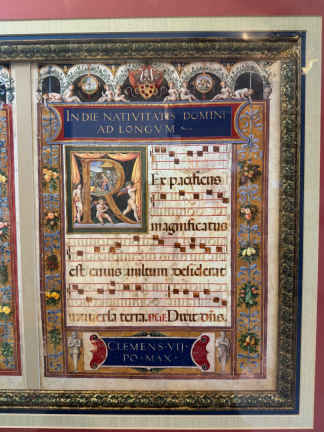 IN DIE NATIVITATIS DOMINI
AD LONGVM
Rex pacificus
magnificatus
est cuius vultum desiderat
universa terra. Dixit dñs.
CLEMENS·VII·
PO·MAX·